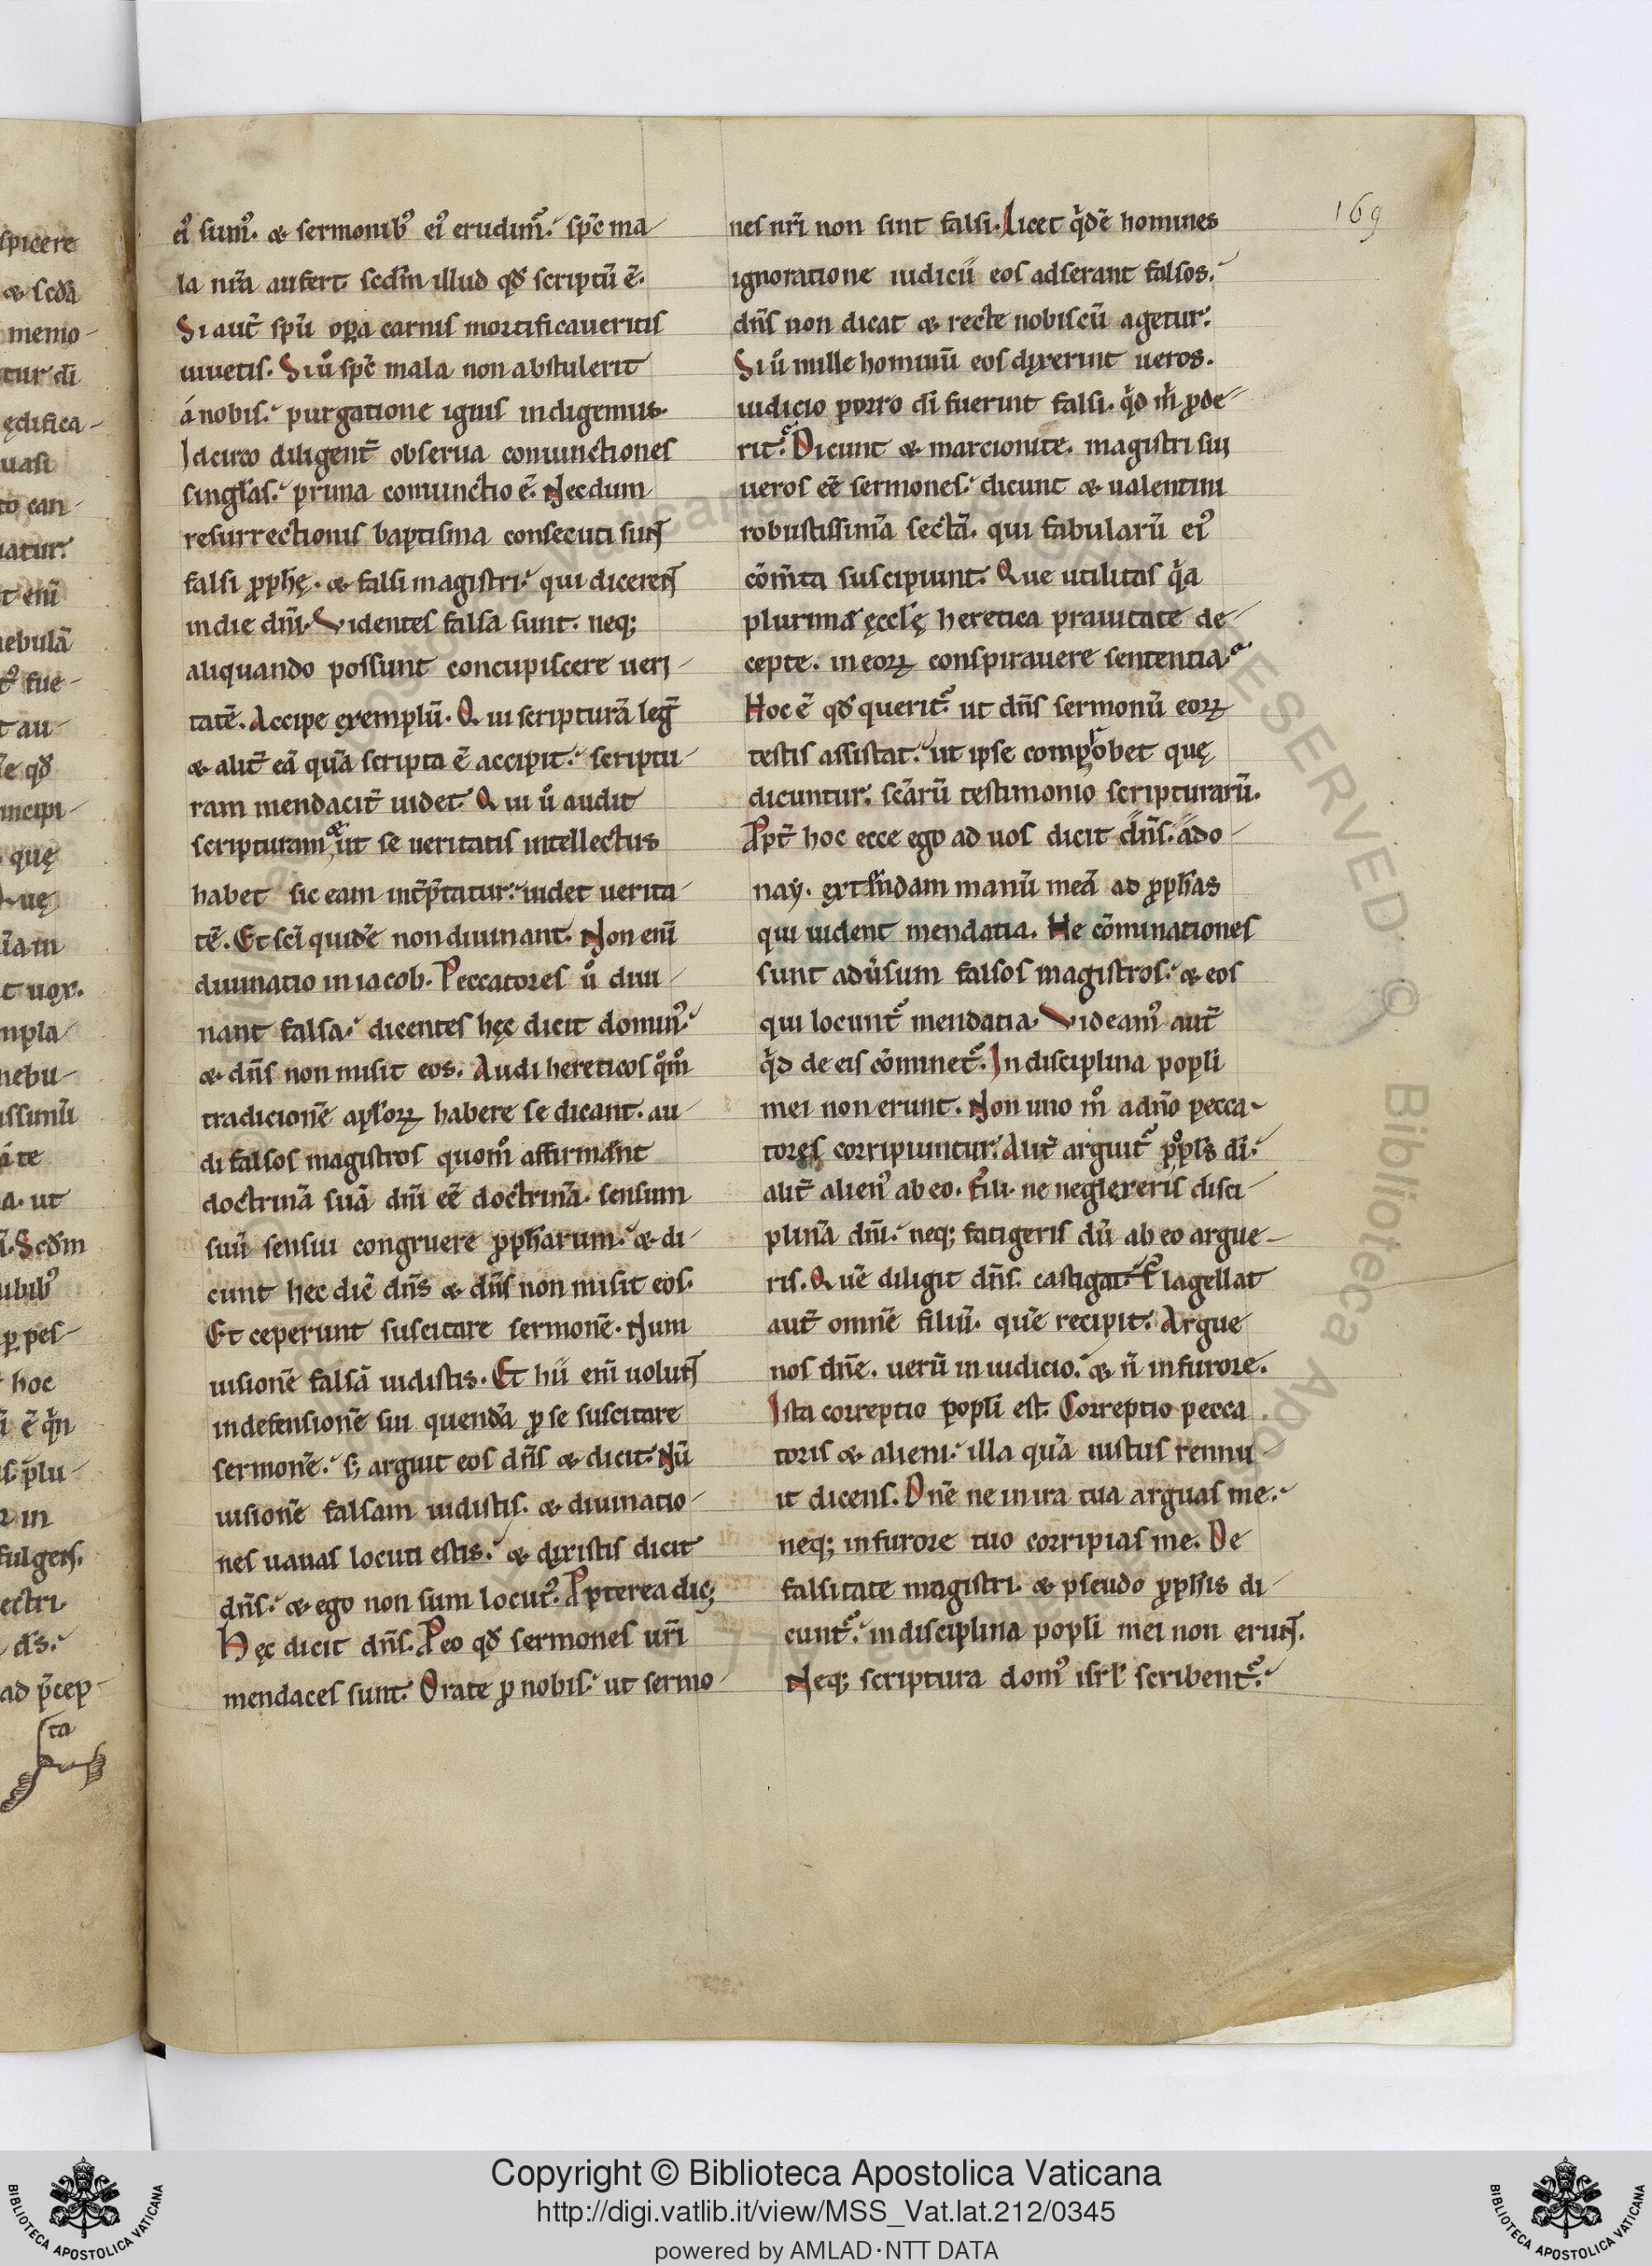 169
ei᷒ sum᷒. & sermonib᷒ ei᷒ erudim᷒. sp̄c ma-
la nr̄a aufert. scdm̄ illud qd̄ scriptū ē.
Si aut̄ spū oꝑa carnis mortificaueritis
uiuetis. Si ů sp̄c mala non abstulerit
á nobis. purgatione ignis indigemus.
Idcirco diligent̄ obserua coniunctiones
singl̄as. prima coniunctio ē. Necdum
resurrectionis baptisma consecuti sun̄t
falsi ꝓph̄ę. & falsi magistri. qui diceren̄t
in die dn̄i. Videntes falsa sunt. neq;
aliquando possunt concupiscere ueri-
tatē. Accipe exemplū. Qui scripturā leḡ
& alit̄ eā quā scripta ē accipit. scriptu-
ram mendacit̄ uidet. Qui ů audit
scripturam & ut se ueritatis intellectus
habet sic eam int̄p̄tatur. uidet uerita-
tē. Et sc̄i quidē non diuinant. Non eni̅
diuinatio in iacob. Peccatores ů diui-
nant falsa. dicentes hęc dicit domin᷒.
& dn̄s non misit eos. Audi hereticos qͦmͦ
tradicionē apl̄oꝝ habere se dicant. au-
di falsos magistros quomͦ affirmant
doctrinā suā dn̄i eē doctrinā. sensum
suū sensui congruere ꝓph̄arum. & di-
cunt hec dic̄ dn̄s & dn̄s non misit eos.
Et ceperunt suscitare sermonē. Num
uisionē falsā uidistis. Et hii eni̅ uolun̄t
in defensionē sui quendā ꝓ se suscitare
sermonē. s; arguit eos dn̄s & dicit. Nū
uisionē falsam uidistis. & diuinatio-
nes uanas locuti estis. & dixistis dicit
dn̄s. & ego non sum locut᷒. Ꝓpterea dic;
Hęc dicit dn̄s. Ꝓ eo qd̄ sermones ur̄i
mendaces sunt. Orate ꝓ nobis. ut sermo-
nes nr̄i non sint falsi. Licet qͥdē homines
ignoratione iudicii eos adserant falsos.
dn̄s non dicat & recte nobiscū agetur.
Si ů mille hominū eos dixerint ueros.
iudicio porro di̅ fuerint falsi. qͥd mͥ ꝓde-
rit. Dicunt & marcionite. magistri sui
ueros eē sermones. dicunt & ualentini
robustissimā sectā. qui fabularū ei᷒
cōm̄ta suscipiunt. Que utilitas qͥa
plurimę ęccl̄ę heretica prauitate de-
cepte. in eoꝝ conspirauere sententia.
Hoc ē qd̄ querit᷒. ut dn̄s sermonū eoꝝ
testis assistat. ut ipse comprobet quę
dicuntur. sc̄arū testimonio scripturarū.
Ꝓpt̄ hoc ecce ego ad uos dicit dn̄s. ado-
nay. extendam manū meā ad ꝓph̄as
qui uident mendatia. He cōminationes
sunt adůsum falsos magistros. & eos
qui locunt᷒ mendatia. Videam᷒ aut̄
qͥd de eis cōminet᷒. In disciplina popl̄i
mei non erunt. Non uno mͦ a dn̄o pecca-
tores corripiuntur. Alit̄ arguit᷒ popl̄s di̅.
alit̄ alien᷒ ab eo. Fili. ne neglexeris disci-
plinā dn̄i. neq; fatigeris dū ab eo argue-
ris. Quē diligit dn̄s. castigat. flagellat
aut̄ omnē filiū. quē recipit. Argue
nos dn̄e. uerū in iudicio. & n̄ in furore.
Ista correptio popl̄i est. Correptio pecca
toris & alieni. illa quā iustus rennu-
it dicens. Dn̄ē ne in ira tua arguas me.
neq; in furore tuo corripias me. De
falsitate magistri. & pseudo ꝓph̄is di-
cunt᷒. in disciplina popl̄i mei non erun̄t.
Neq; scriptura dom᷒ isrl̄ scribent᷒.
Copyright © Biblioteca Apostolica Vaticana
http://digi.vatlib.it/view/MSS_Vat.lat.212/0345
powered by AMLAD·NTT DATA
BIBLIOTECA APOSTOLICA VATICANA
BIBLIOTECA APOSTOLICA VATICANA